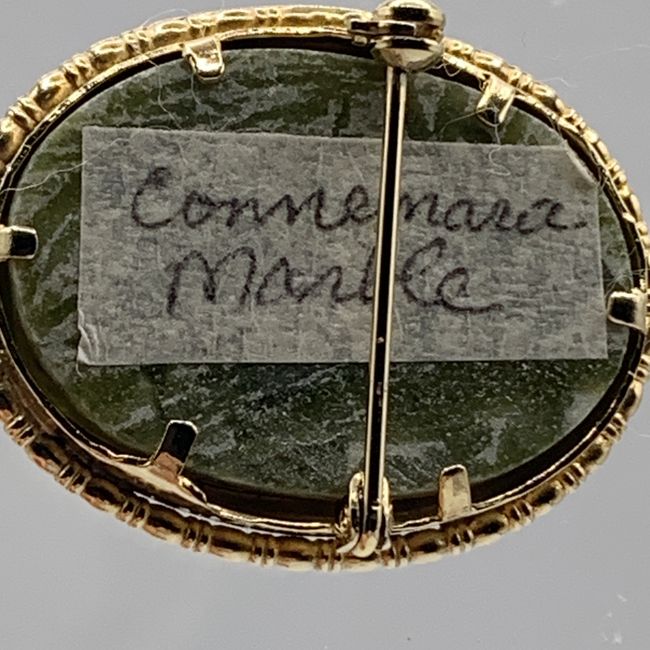 Connemara
Marble